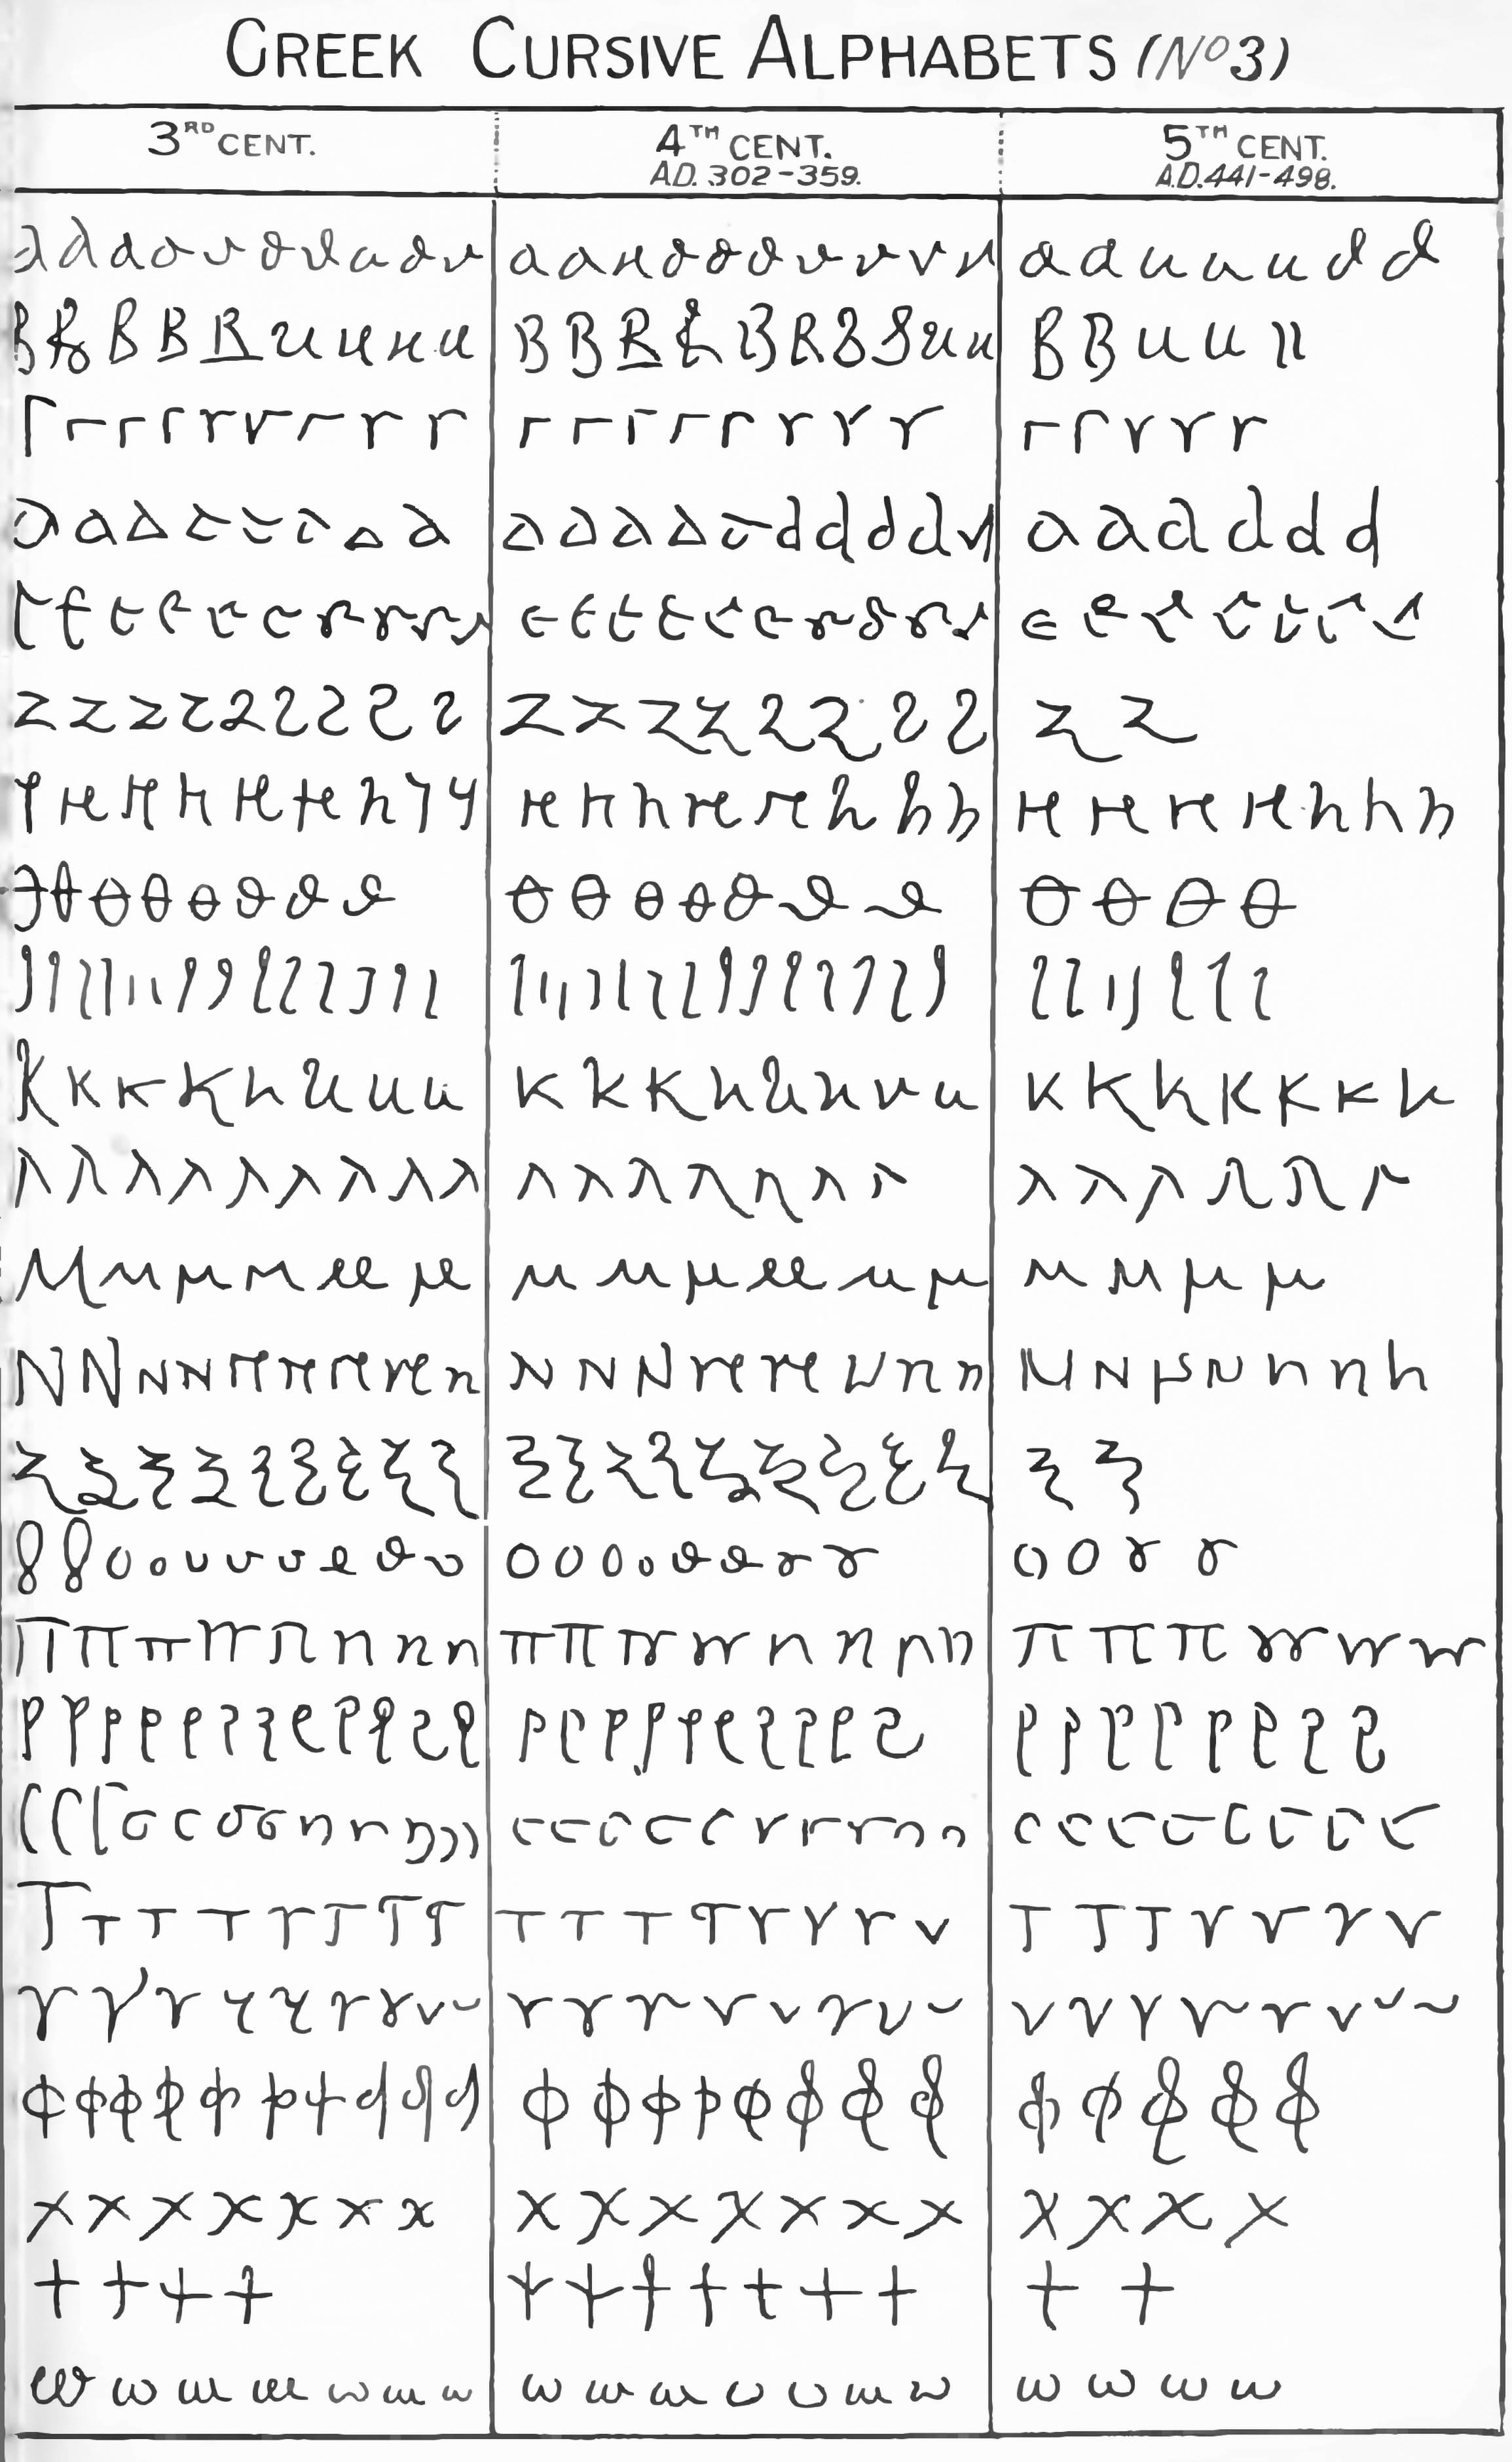 GREEK CURSIVE ALPHABETS (No 3)
3RD CENT. 4TH CENT. 5TH CENT.
A.D. 302-359. A.D. 441-498.
α α α α α α α α α α α α α α α α α α α α α α α α α α α
β β β β β β β β β β β β β β β β β β β β β β β β
γ γ γ γ γ γ γ γ γ γ γ γ γ γ γ γ γ γ γ γ γ γ
δ δ δ δ δ δ δ δ δ δ δ δ δ δ δ δ δ δ δ δ δ δ δ δ
ε ε ε ε ε ε ε ε ε ε ε ε ε ε ε ε ε ε ε ε ε ε ε ε ε ε ε
ζ ζ ζ ζ ζ ζ ζ ζ ζ ζ ζ ζ ζ ζ ζ ζ ζ ζ ζ
η η η η η η η η η η η η η η η η η η η η η η η η
θ θ θ θ θ θ θ θ θ θ θ θ θ θ θ θ θ θ θ
ι ι ι ι ι ι ι ι ι ι ι ι ι ι ι ι ι ι ι ι ι ι ι ι ι ι ι ι ι ι ι ι ι ι ι
κ κ κ κ κ κ κ κ κ κ κ κ κ κ κ κ κ κ κ κ κ κ κ
λ λ λ λ λ λ λ λ λ λ λ λ λ λ λ λ λ λ λ λ λ λ
μ μ μ μ μ μ μ μ μ μ μ μ μ μ μ μ
ν ν ν ν ν ν ν ν ν ν ν ν ν ν ν ν ν ν ν ν ν ν ν ν
ξ ξ ξ ξ ξ ξ ξ ξ ξ ξ ξ ξ ξ ξ ξ ξ ξ ξ ξ ξ
ο ο ο ο ο ο ο ο ο ο ο ο ο ο ο ο ο ο ο ο ο ο
π π π π π π π π π π π π π π π π π π π π π π
ρ ρ ρ ρ ρ ρ ρ ρ ρ ρ ρ ρ ρ ρ ρ ρ ρ ρ ρ ρ ρ ρ ρ ρ ρ ρ ρ ρ ρ ρ
σ σ σ σ σ σ σ σ σ σ σ σ σ σ σ σ σ σ σ σ σ σ σ σ σ σ σ σ σ σ
τ τ τ τ τ τ τ τ τ τ τ τ τ τ τ τ τ τ τ τ τ τ τ
υ υ υ υ υ υ υ υ υ υ υ υ υ υ υ υ υ υ υ υ υ υ υ υ υ
φ φ φ φ φ φ φ φ φ φ φ φ φ φ φ φ φ φ φ φ φ φ φ
χ χ χ χ χ χ χ χ χ χ χ χ χ χ χ χ χ χ
ψ ψ ψ ψ ψ ψ ψ ψ ψ ψ ψ ψ ψ
ω ω ω ω ω ω ω ω ω ω ω ω ω ω ω ω ω ω